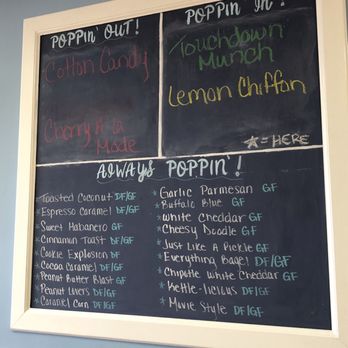 POPPIN' OUT!
Cotton Candy
Cherry A La
Mode
POPPIN' IN!
Touchdown
Munch
Lemon Chiffon
☆=HERE
ALWAYS POPPIN'!
*Toasted Coconut DF/GF
*Espresso Caramel DF/GF
*Sweet Habanero GF
*Cinnamon Toast DF/GF
*Cookie Explosion DF
*Cocoa Caramel DF/GF
*Peanut Butter Blast GF
*Peanut Lovers DF/GF
*Caramel Corn DF/GF
*Garlic Parmesan GF
*Buffalo Blue GF
*White Cheddar GF
*Cheesy Doodle GF
*Just Like A Pickle GF
*Everything Bagel DF/GF
*Chipotle White Cheddar GF
*Kettle-licious DF/GF
*Movie Style DF/GF